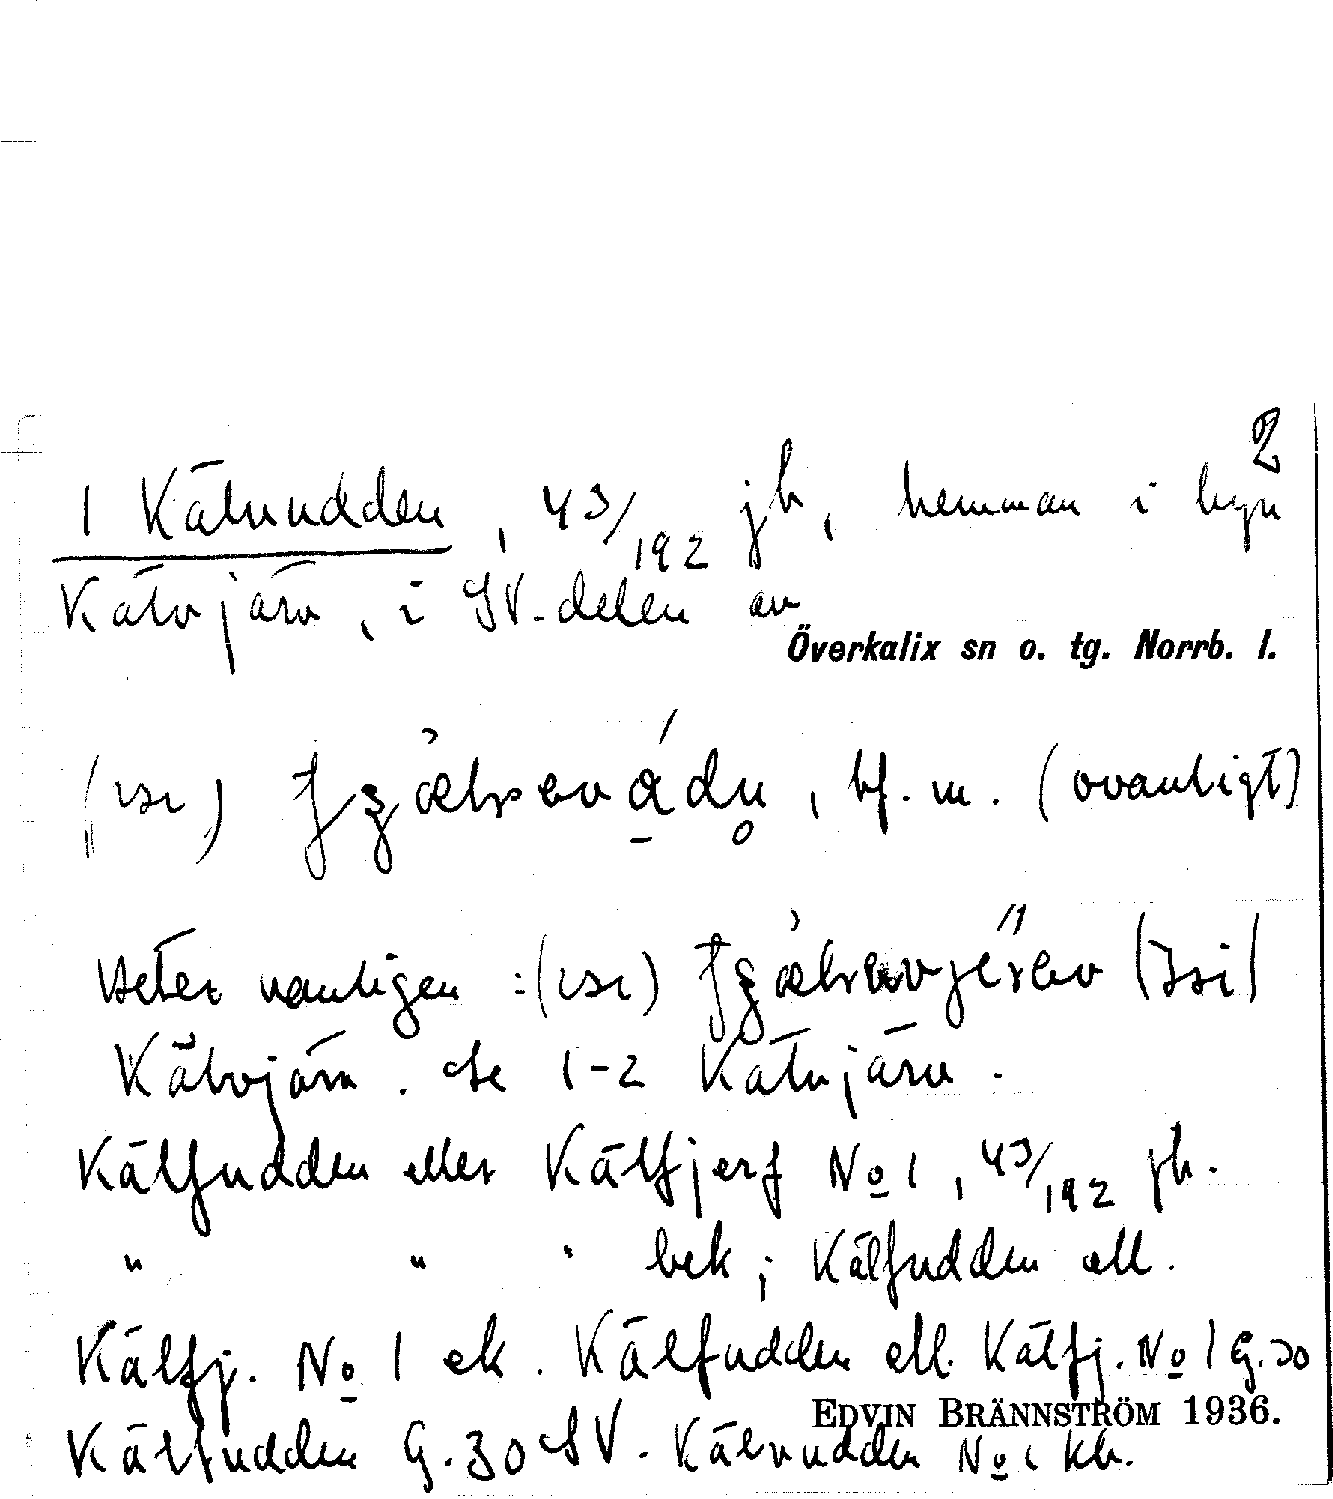 2
1 Kälvudden, 43/192 jb, hemman i byn
Kälvjärv, i SV-delen av
Överkalix sn o. tg. Norrb. l.
bf. m. (ovanligt)
Heter vanligen : (isı)
Kälvjärv. Se 1-2 Kälvjärv.
Kälfudden eller Kälfjerf No 1, 43/192 jb.
" " " bek; Kälfudden ell.
Kälfj. No 1 ek. Kälfudden ell. Kälfj. No 1 G.30
EDVIN BRÄNNSTRÖM 1936.
Kälfudden G.30 SV. Kälvudden No 1 kb.